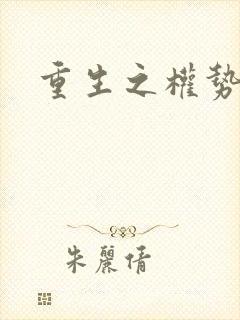 重生之權勢
朱麗倩